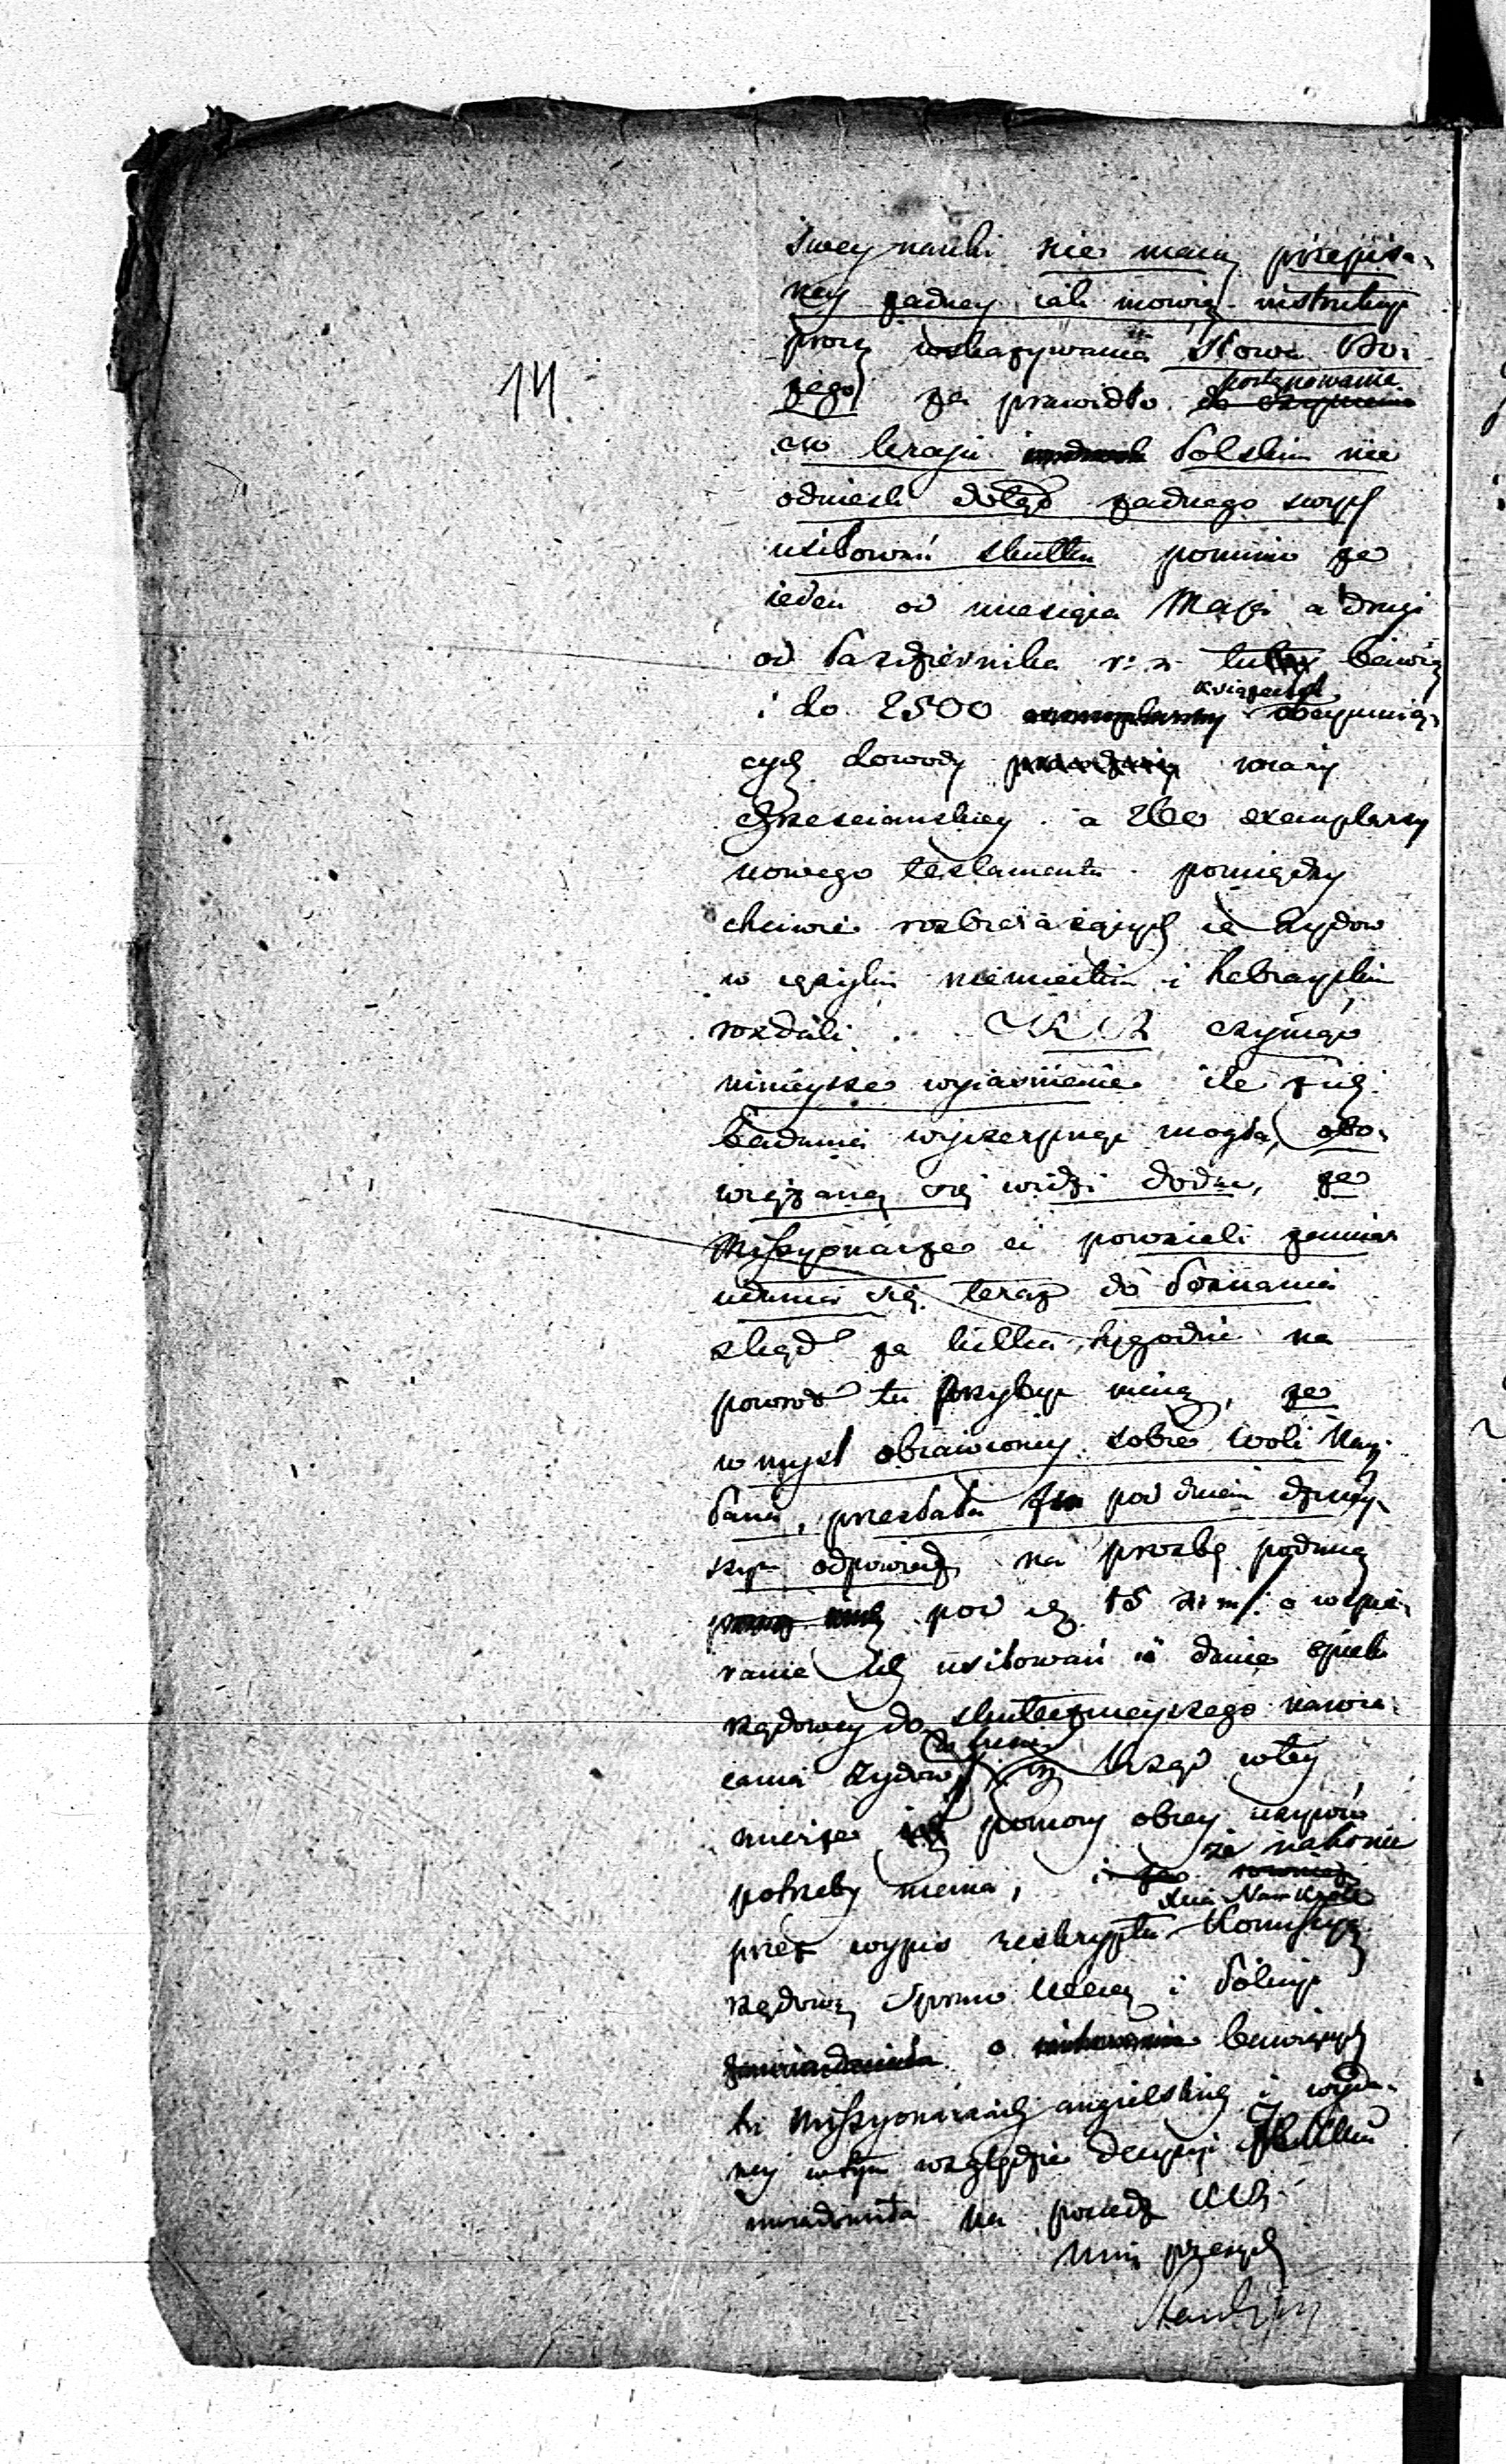 14
swey nauki nie maią przepisa-
ney żadney iak mowią instrukcyi
prócz wskazywania Słowa Bo-
żego za prawidło postępowania
w kraju Polskim nie
odnieśli dotąd żadnego swych
usiłowań skutku pomimo że
ieden od miesiąca Maja a drugi
od Pazdziernika r: z. bawią
i do 2500 książeczek obeymuią-
cych dowody wiary
chrzesciańskiey a exemplarzy
nowego testamentu pomiędzy
chciwie rozbieraiących ie Żydów
w ięzyku niemieckim i hebrayskim
rozdali. czyniąc
ninieysze wyiaśnienie ile z ich
badania wyczerpnąć mogła, obo-
wiązaną się widzi dodać, że
Missyonarze ci powzieli zamiar
udania się teraz do Poznania
zkąd za kilka tygodni na
powrót tu przybyć maią, że
w myśl obiawioney sobie woli Nay:
Pana, przesłała im pod dniem dzisiey-
szym odpowiedź na prozbę podaną
pod d. 15 o wspie-
ranie ich usiłowań i danie opieki
rządowey do skutecznieyszego nawra-
cania Żydów Rząd w tey
mierze pomocy obcey używać
potrzeby niema, i że nakoniec
przez wypis reskryptu Kommissyą
rządową Spraw Wewn: i Policyi
o bawiących
tu Missyonarzach angielskich i wyda-
ney w tym względzie decyzyi
uwiadomiła na posiedz: